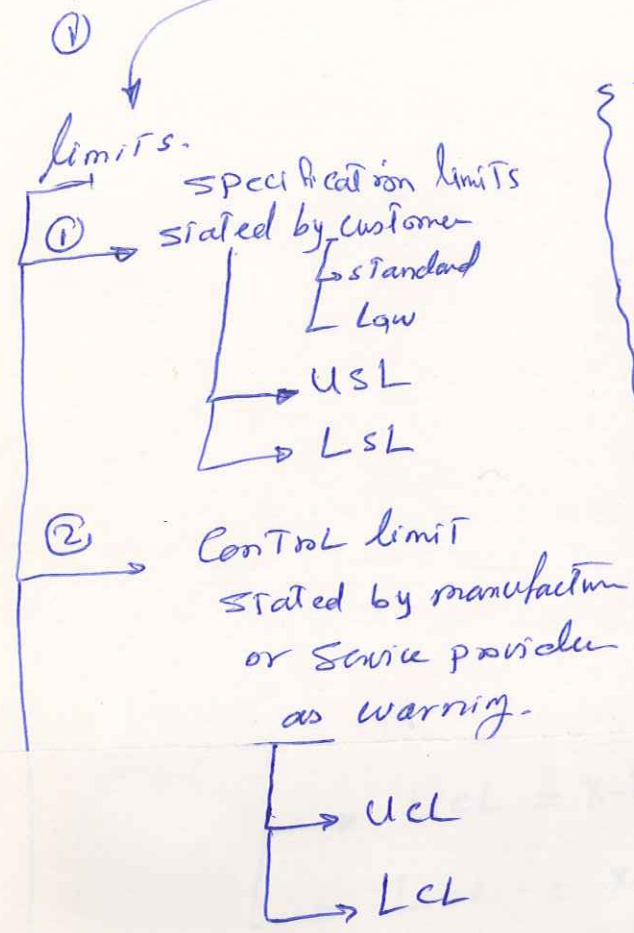 ①
limits.
specification limits
① stated by customer
standard
Law
USL
LSL
② Control limit
stated by manufacture
or Service provider
as warning.
UCL
LCL